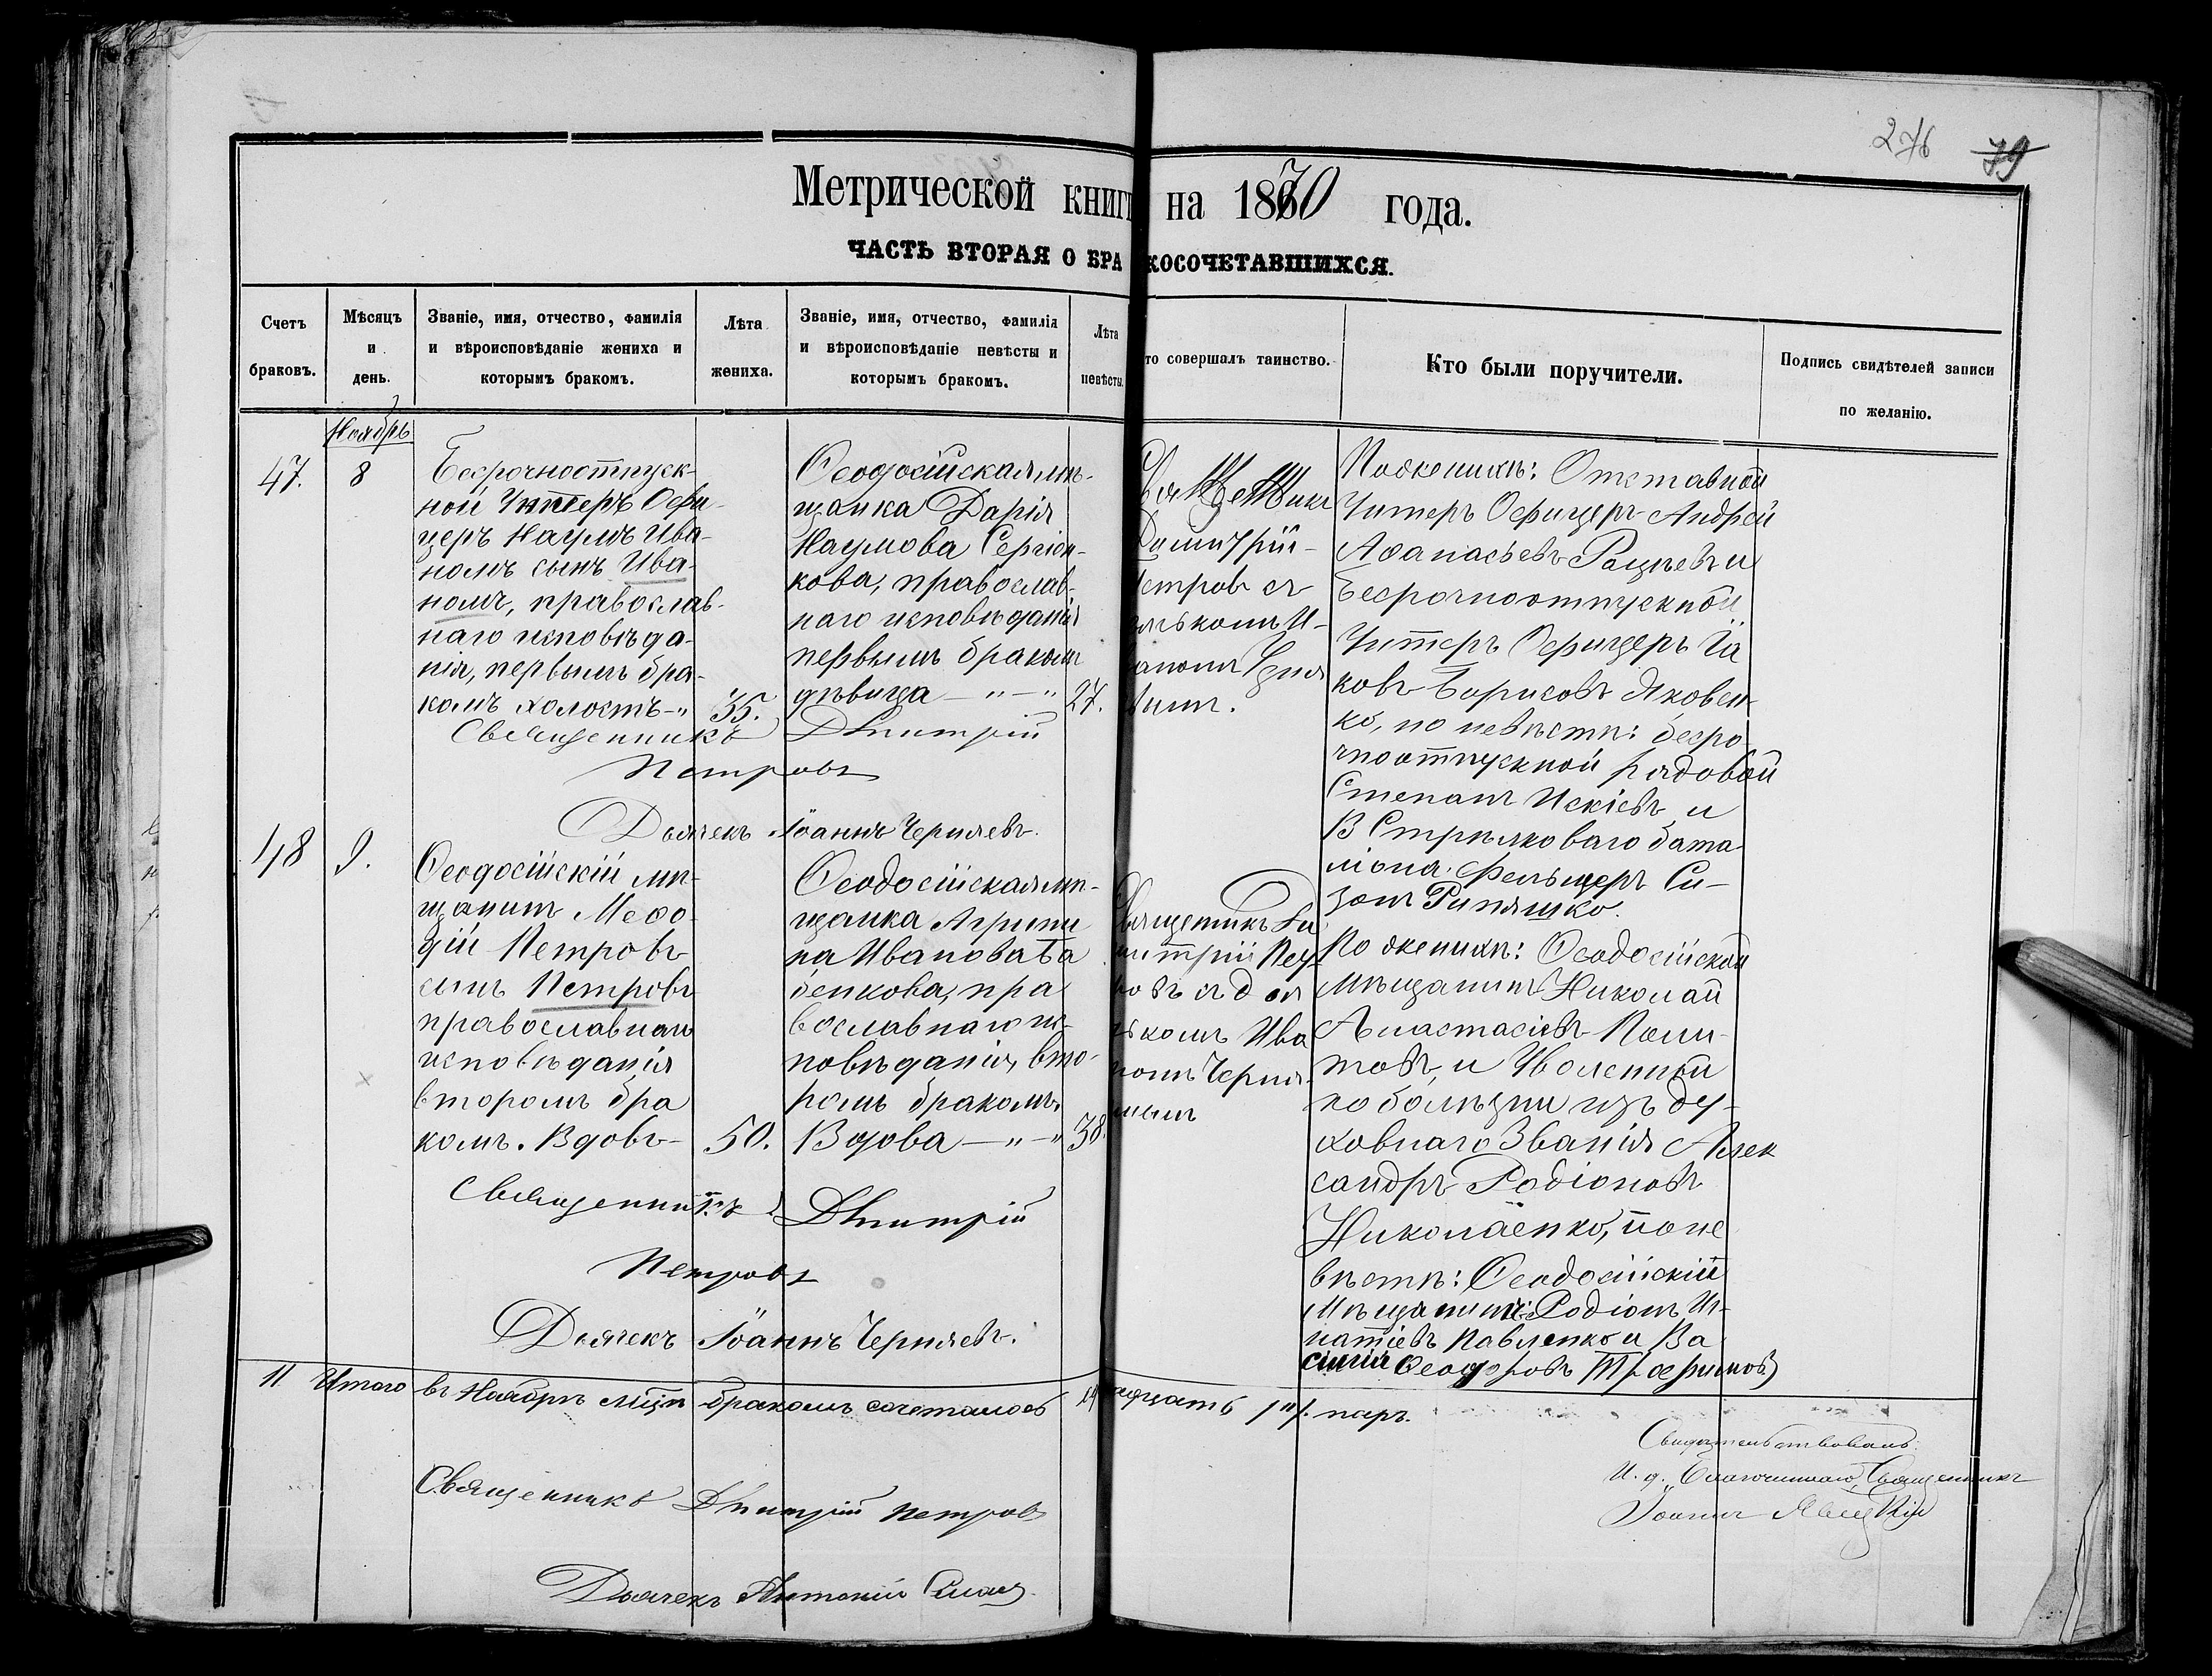 276 79
Метрической книги на 1870 года.
ЧАСТЬ ВТОРАЯ О БРАКОСОЧЕТАВШИХСЯ.
Счетъ
браковъ.
Мѣсяцъ
и
день.
Званіе, имя, отчество, фамилія
и вѣроисповѣданіе жениха и
которымъ бракомъ.
Лѣта
жениха.
Званіе, имя, отчество, фамилія
и вѣроисповѣданіе невѣсты и
которымъ бракомъ.
Лѣта
невѣсты.
то совершалъ таинство.
Кто были поручители.
Подпись свидѣтелей записи
по желанію.
Ноябрь
47.
8
Безсрочноотпуск-
ной Унтеръ Офи-
церъ Наумъ Ива-
новъ сынъ Ива-
новъ, православ-
наго исповѣда-
нія, первымъ бра-
комъ холостъ-"
35.
Ѳеодосійская мѣ-
щанка Дарія
Наумова Сергіен-
кова, православ-
наго исповѣданія
первымъ бракомъ
дѣвица — " — "
27.
Священникъ
Димитрій
Петровъ съ
дьячкомъ И-
ваномъ
вымъ.
По женихѣ: Отставной
Унтеръ Офицеръ Андрей
Аѳанасьевъ и
Безсрочноотпускной
Унтеръ Офицеръ Іа
ковъ Борисовъ Яковен
ко, по невѣстѣ: безсро
чноотпускной рядовой
Степанъ и
В Стрѣлковаго бата
ліона фельдшеръ Си-
Священникъ Дмитрій
Петровъ
Дьячекъ Іоаннъ Черняевъ.
48
9.
Ѳеодосійскій мѣ-
щанинъ Меѳо
дій Петровъ
сынъ Петровъ
православнаго
исповѣданія
вторымъ бра
комъ. Вдовъ-
50.
Ѳеодосійская мѣ-
щанка Агрипи
на Иванова Ба
бенкова, пра
вославнаго ис-
повѣданія, вто-
рымъ бракомъ.
Вдова — " — "
38.
Священникъ Ди
митрій Пет
ровъ съ дья
чкомъ Ива
номъ Черня-
евымъ
По женихѣ: Ѳеодосійской
Мѣщанинъ Николай
Анастасіевъ
и Уволенный
по болѣзни изъ ду-
ховнаго Званія Алек
сандръ Родіоновъ
Николаенко, по не
вѣстѣ: Ѳеодосійскій
Мѣщанинъ: Родіонъ Иг-
натіевъ Павленко и Ва
силій Ѳеодоровъ
Священникъ Дмитрій
Петровъ
Дьячекъ Іоаннъ Черняевъ.
11 Итого въ Ноябрѣ мцѣ бракомъ сочеталось паръ.
Священникъ Дмитрій Петровъ
Дьячекъ Антоній
Свидѣтельствовалъ
И. д. Благочиннаго, Священникъ
Іоаннъ